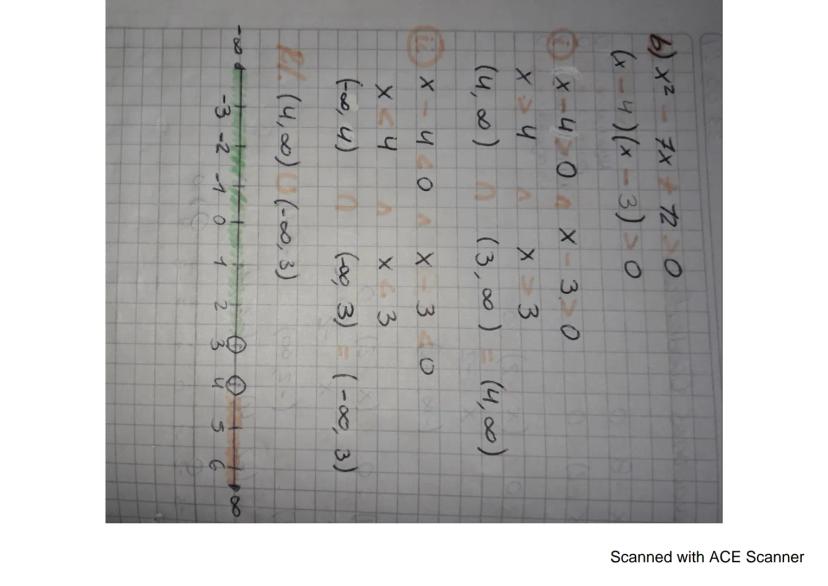 b) x² - 7x + 12 > 0
(x - 4)(x - 3) > 0
i) x - 4 > 0 ∧ x - 3 > 0
x > 4 ∧ x > 3
(4, ∞) ∩ (3, ∞) = (4, ∞)
ii) x - 4 < 0 ∧ x - 3 < 0
x < 4 ∧ x < 3
(-∞, 4) ∩ (-∞, 3) = (-∞, 3)
R/. (4, ∞) ∪ (-∞, 3)
-∞ -3 -2 -1 0 1 2 3 4 5 6 ∞
Scanned with ACE Scanner